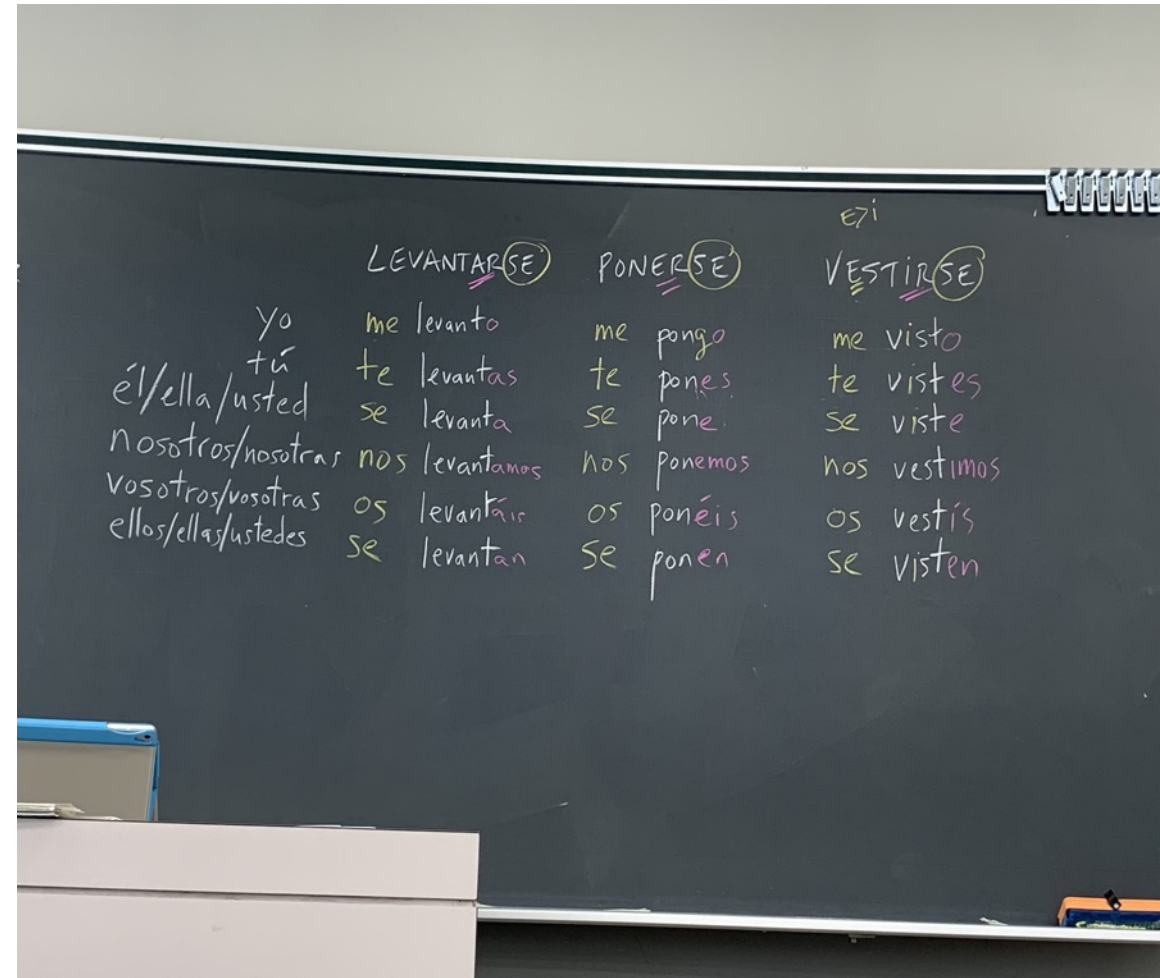 e>i
LEVANTARSE PONERSE VESTIRSE
yo me levanto me pongo me visto
tú te levantas te pones te vistes
él/ella/usted se levanta se pone se viste
nosotros/nosotras nos levantamos nos ponemos nos vestimos
vosotros/vosotras os levantáis os ponéis os vestís
ellos/ellas/ustedes se levantan se ponen se visten